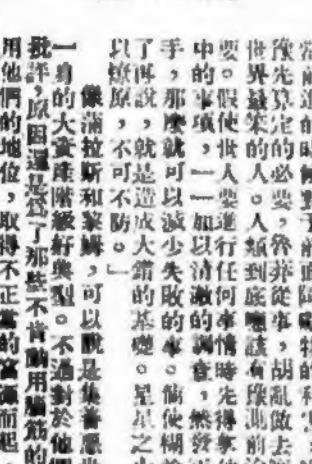 預先算定的必要，魯莽從事，胡亂做去
世界最笨的人。人類到底應該有預測前
要。假使世人要進行任何事情時先得
中的事項，一一加以清澈的調查，然
手，那麼就可以減少失敗的事。倘使糊
了再說，就是造成大錯的基礎。星星之
以燎原，不可不防。」
像滿拉斯和黎姆，可以說是集善惡
一身的大資產階級好典型。不過對於他們
批評，原因還是為了那些不肯動用腦筋的
用他們的地位，取得不正當的富源而起